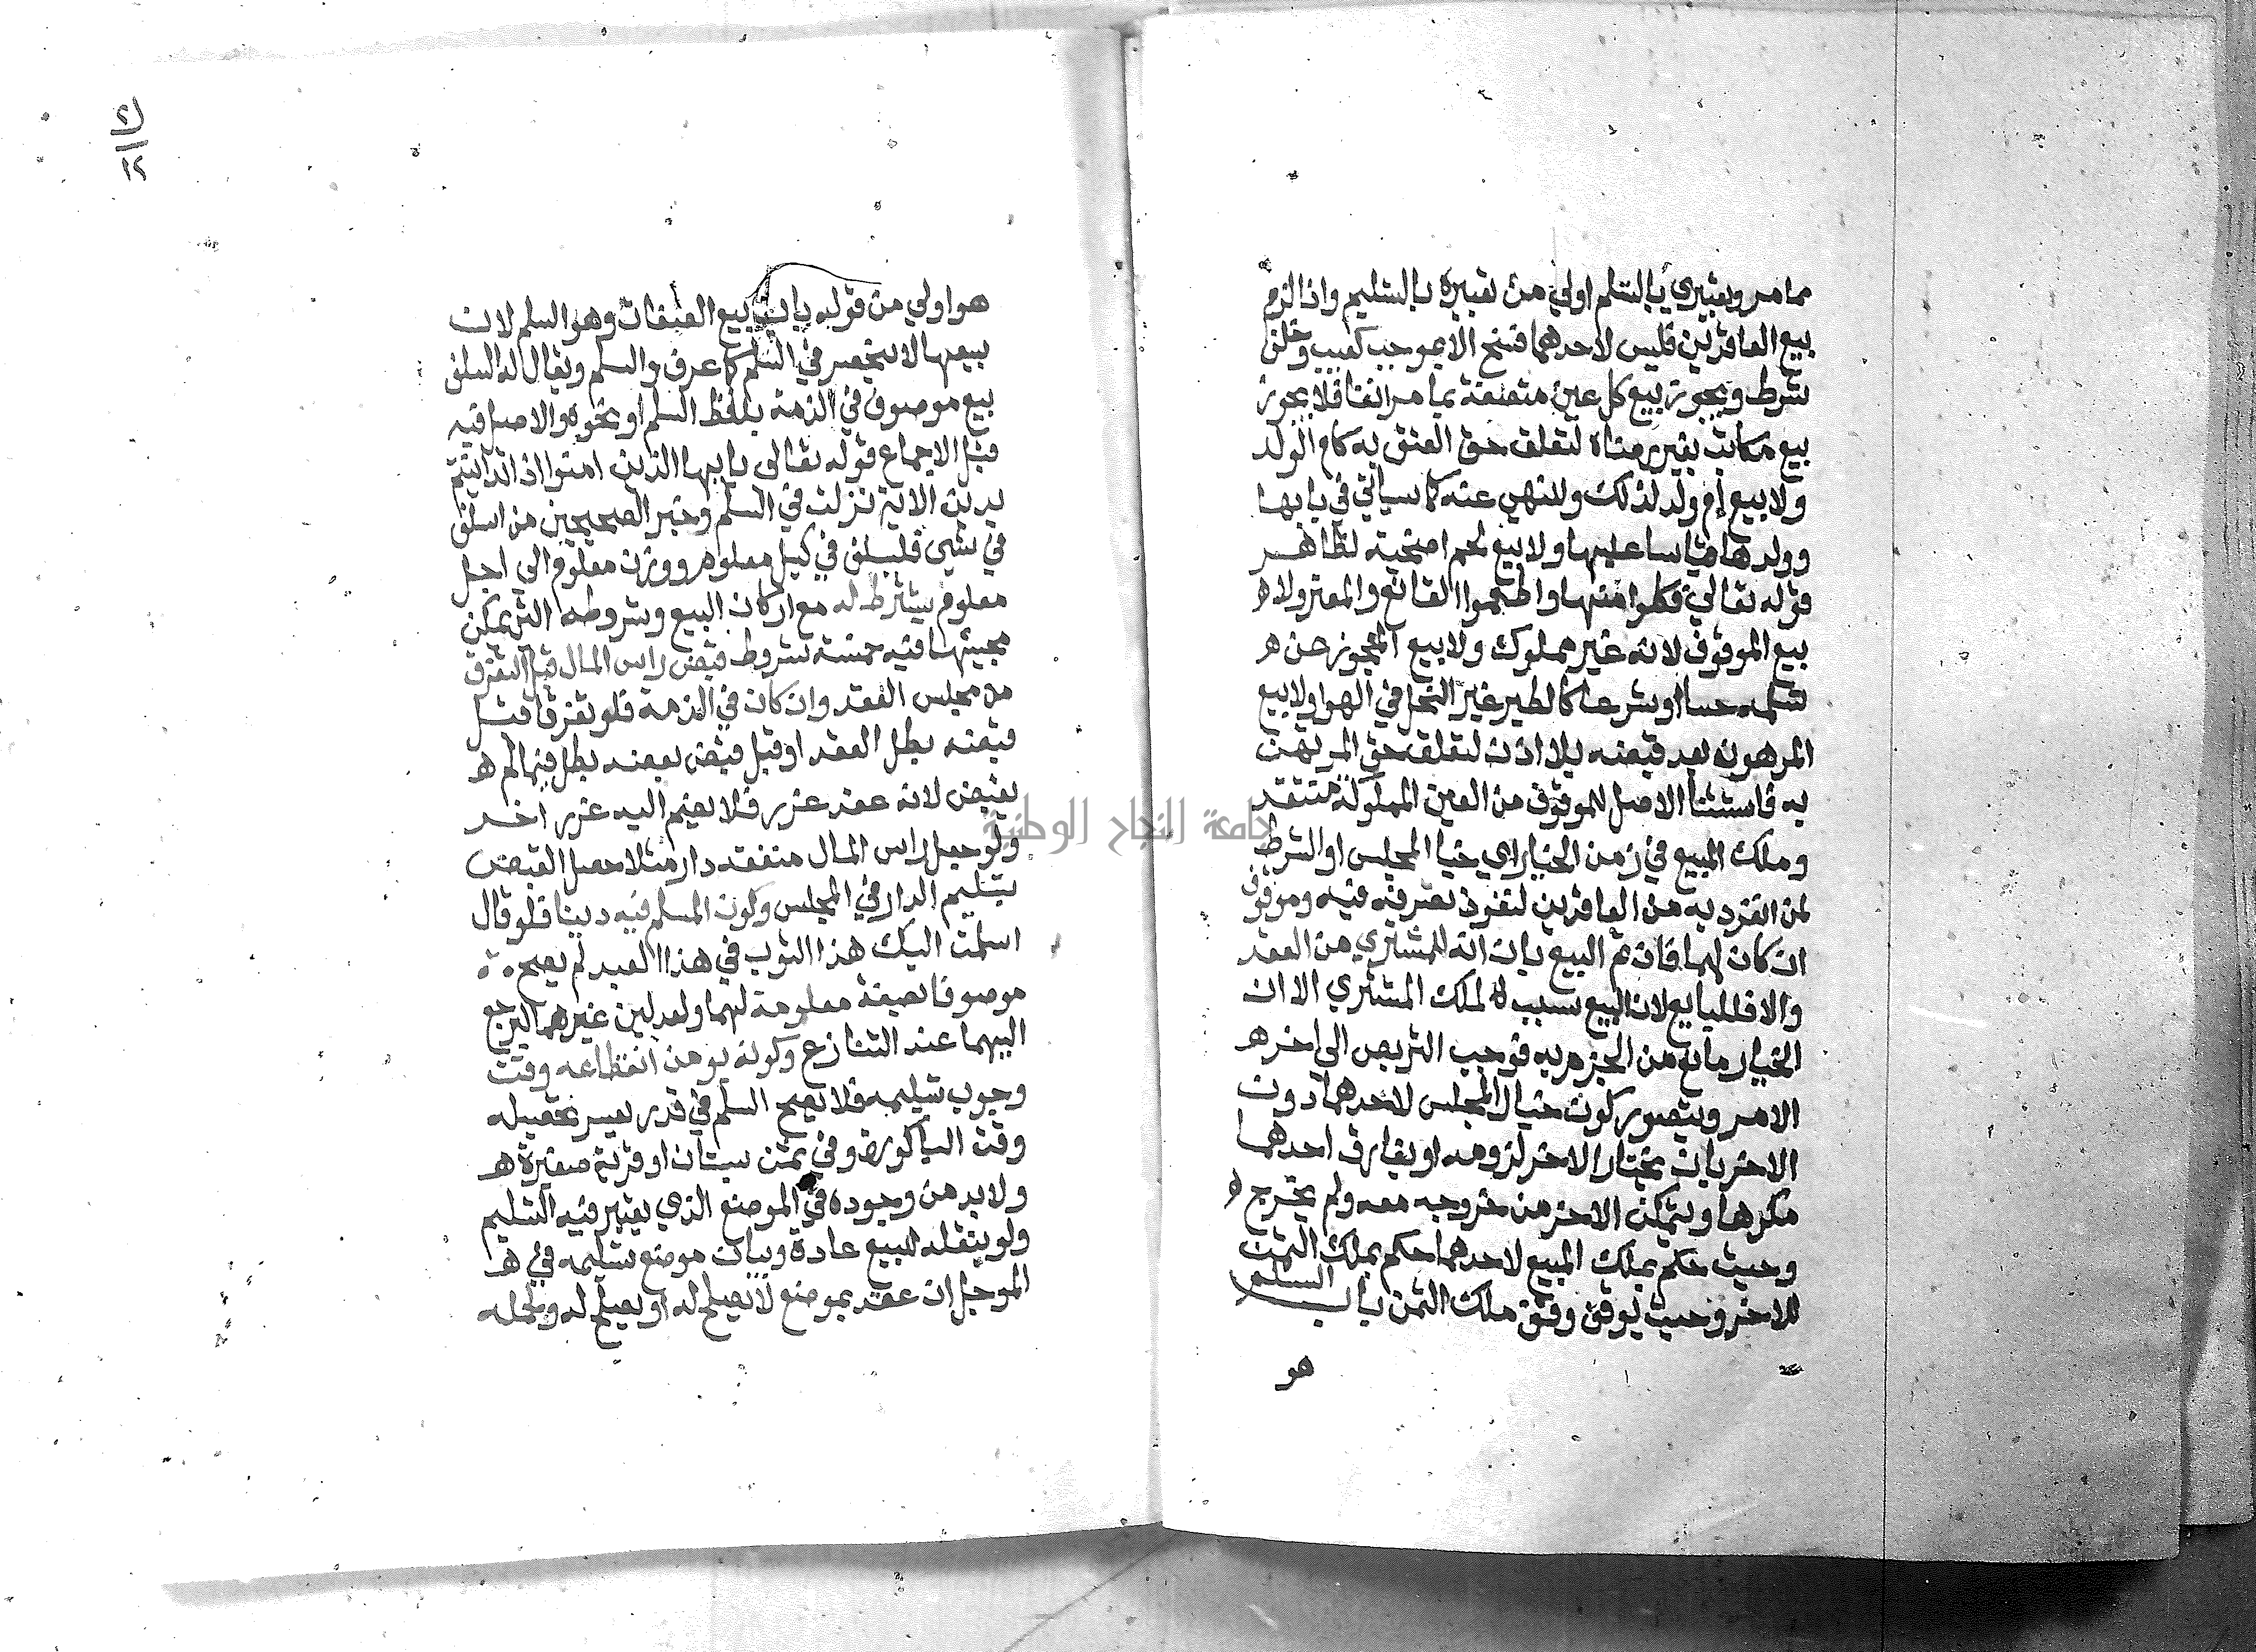 مما مر وتعبيري بالتسلم اولي من تعبيره بالتسليم واذا لزم
بيع العاقدين فليس لاحدهما فسخ الا بموجب كعيب وخلف
شرط ويجوز بيع كل عين متصفة بما مر انفا فلا يجوز
بيع مكاتب بغير رضاه لتعلق حق العتق به كام الولد
ولا بيع ام ولد لذلك وللنهي عنه كما سياتي في بابها
وولدها قياسا عليها ولا بيع لحم اضحية لظاهر
قوله تعالي فكلوا منها واطعموا القانع والمعتر ولا ه
بيع الموقوف لانه غير مملوك ولا بيع المعجوز عن ه
تسلمه حسا او شرعا كالطير غير النحل في الهوا ولا بيع
المرهون بعد قبضه بلا اذن لتعلق حق المرتهن
به فاستثنا الاصل للموقوف من العين المملوكة منتقد
وملك المبيع في زمن الخيار اي خيا المجلس او الشرط
لمن انفرد به من العاقدين لنفوذ تصرفه فيه وموقوف
ان كان لهما فان تم البيع بان انه للمشتري من العقد
والا فللبايع لان البيع سبب ه لملك المشتري الا ان
الخيار مانع من الجزم به فوجب التربص الى اخر ه
الامر ويتصور كون خيار المجلس لاحدهما دون
الاخر بان يختار الاخر لزومه او يفارق احدهما
مكرها ويتمكن الاخر من خروجه معه ولم يخرج ه
وحيث حكم بملك المبيع لاحدهما حكم بملك الثمن
للاخر وحيث توقف وقف ملك الثمن باب السلم
هو
هو اولي من قوله باب بيع الصفات وهو السلم لان
بيعها لا ينحصر في السلم كما عرف والسلم ويقال له السلف
بيع موصوف في الذمة بلفظ السلم او نحوه والاصل فيه
قبل الاجماع قوله تعالى يا ايها الذين امنوا اذا تداينتم
بدين الاية نزلت في السلم وخبر الصحيحين من اسلف
في شي فليسلف في كيل معلوم ووزن معلوم الي اجل
معلوم يشترط له مع اركان البيع وشروطه التي يمكن
مجيئها فيه خمسة شروط قبض راس المال قبل التفرق
من مجلس العقد وان كان في الذمة فلو تفرقا قبل
قبضه بطل العقد او قبل قبض بعضه بطل فيما لم ه
يقبض لانه عقد غرر فلا يضم اليه غرر اخر
ولو جعل راس المال منفعة دار مثلا حصل القبض
بتسليم الدار في المجلس وكون المسلم فيه دينا فلو قال
اسلمت اليك هذا الثوب في هذا العبد لم يصح ه
موصوفا بصفة معلومة لهما ولعدلين غيرهما ليرجع
اليهما عند التنازع وكونه يومن انقطاعه وقت
وجوب تسليمه فلا يصح السلم في قدر يعسر تحصيله
وقت الباكورة وفي ثمن بستان او قرية صغيرة ه
ولابد من وجوده في الموضع الذي يعتبر فيه التسليم
ولو بنقله للبيع عادة وبيان موضع تسليمه في ه
الموجل ان عقد بموضع لا يصلح له او يصلح له ولحمله
جامعة النجاح الوطنية